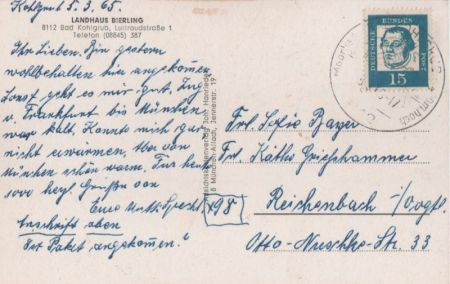 Kohlgrub 5. 3. 65.
LANDHAUS BIERLING
8112 Bad Kohlgrub, Luitraudstraße 1
Telefon (08845) 387
Ihr Lieben. Bin gestern
wohlbehalten hier angekommen.
Sonst geht es mir gut. Zug
v. Frankfurt bis München
war kalt. Konnte mich gar
nicht erwärmen. Aber von
München schön warm. Für heute
1000 hrzl. Grüße von
Eure Martha Specht
Anschrift oben
Ist Paket angekommen?
Ansichtskartenverlag Joh. Hanrieder
8 München-Allach, Jennerstr. 19
DEUTSCHE BUNDESPOST
15
Frl. Sofie Bayer
Frl. Käthe Grieshammer
x98
Reichenbach i/Vogtl.
Otto-Nuschke-Str. 33